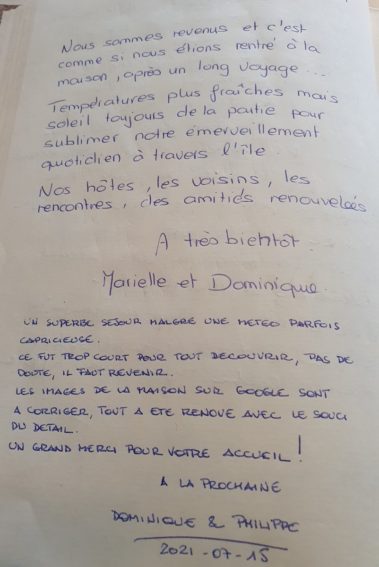 Nous sommes revenus et c'est
comme si nous étions rentré à la
maison, après un long voyage...
Températures plus fraîches mais
soleil toujours de la partie pour
sublimer notre émerveillement
quotidien à travers l'île.
Nos hôtes, les voisins, les
rencontres, des amitiés renouvelées
A très bientôt.
Marielle et Dominique.
UN SUPERBE SEJOUR MALGRE UNE METEO PARFOIS
CAPRICIEUSE.
CE FUT TROP COURT POUR TOUT DECOUVRIR, PAS DE
DOUTE, IL FAUT REVENIR.
LES IMAGES DE LA MAISON SUR GOOGLE SONT
A CORRIGER, TOUT A ETE RENOVE AVEC LE SOUCI
DU DETAIL.
UN GRAND MERCI POUR VOTRE ACCUEIL!
A LA PROCHAINE
DOMINIQUE & PHILIPPE
2021-07-15